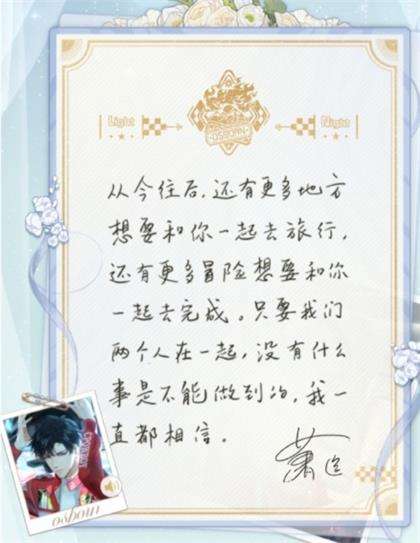 OSBORN
Light
Night
从今往后,还有更多地方
想要和你一起去旅行,
还有更多冒险想要和你
一起去完成。只要我们
两个人在一起,没有什么
事是不能做到的,我一
直都相信。
萧逸
osborn